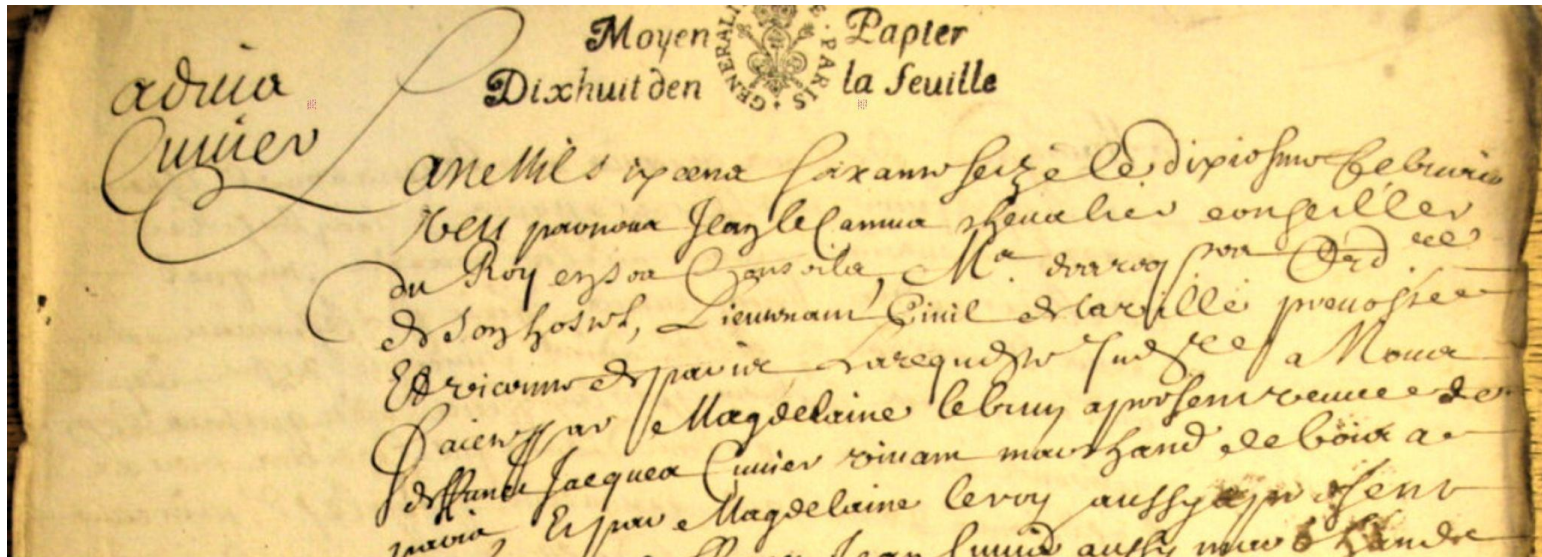 Moyen Papier
Dixhuit den la feuille
GENERALI PARIS
advia
Cuvier
Lan Mil six cens soixante seize le dixiesme Febvrier
veu par nous Jean le Camus chevalier conseiller
du Roy en son Conseils, Me des reqtes ord re
de son hostel, Lieutenant Civil de la ville prevosté
Et viconté de paris La requeste A Nous
faicte par Magdelaine lebrun a present veuve de
deffunct Jacques Cuvier vivant marchand de bois a
paris, Et par Magdelaine leroy aussy a present
Jean aussy marchand de